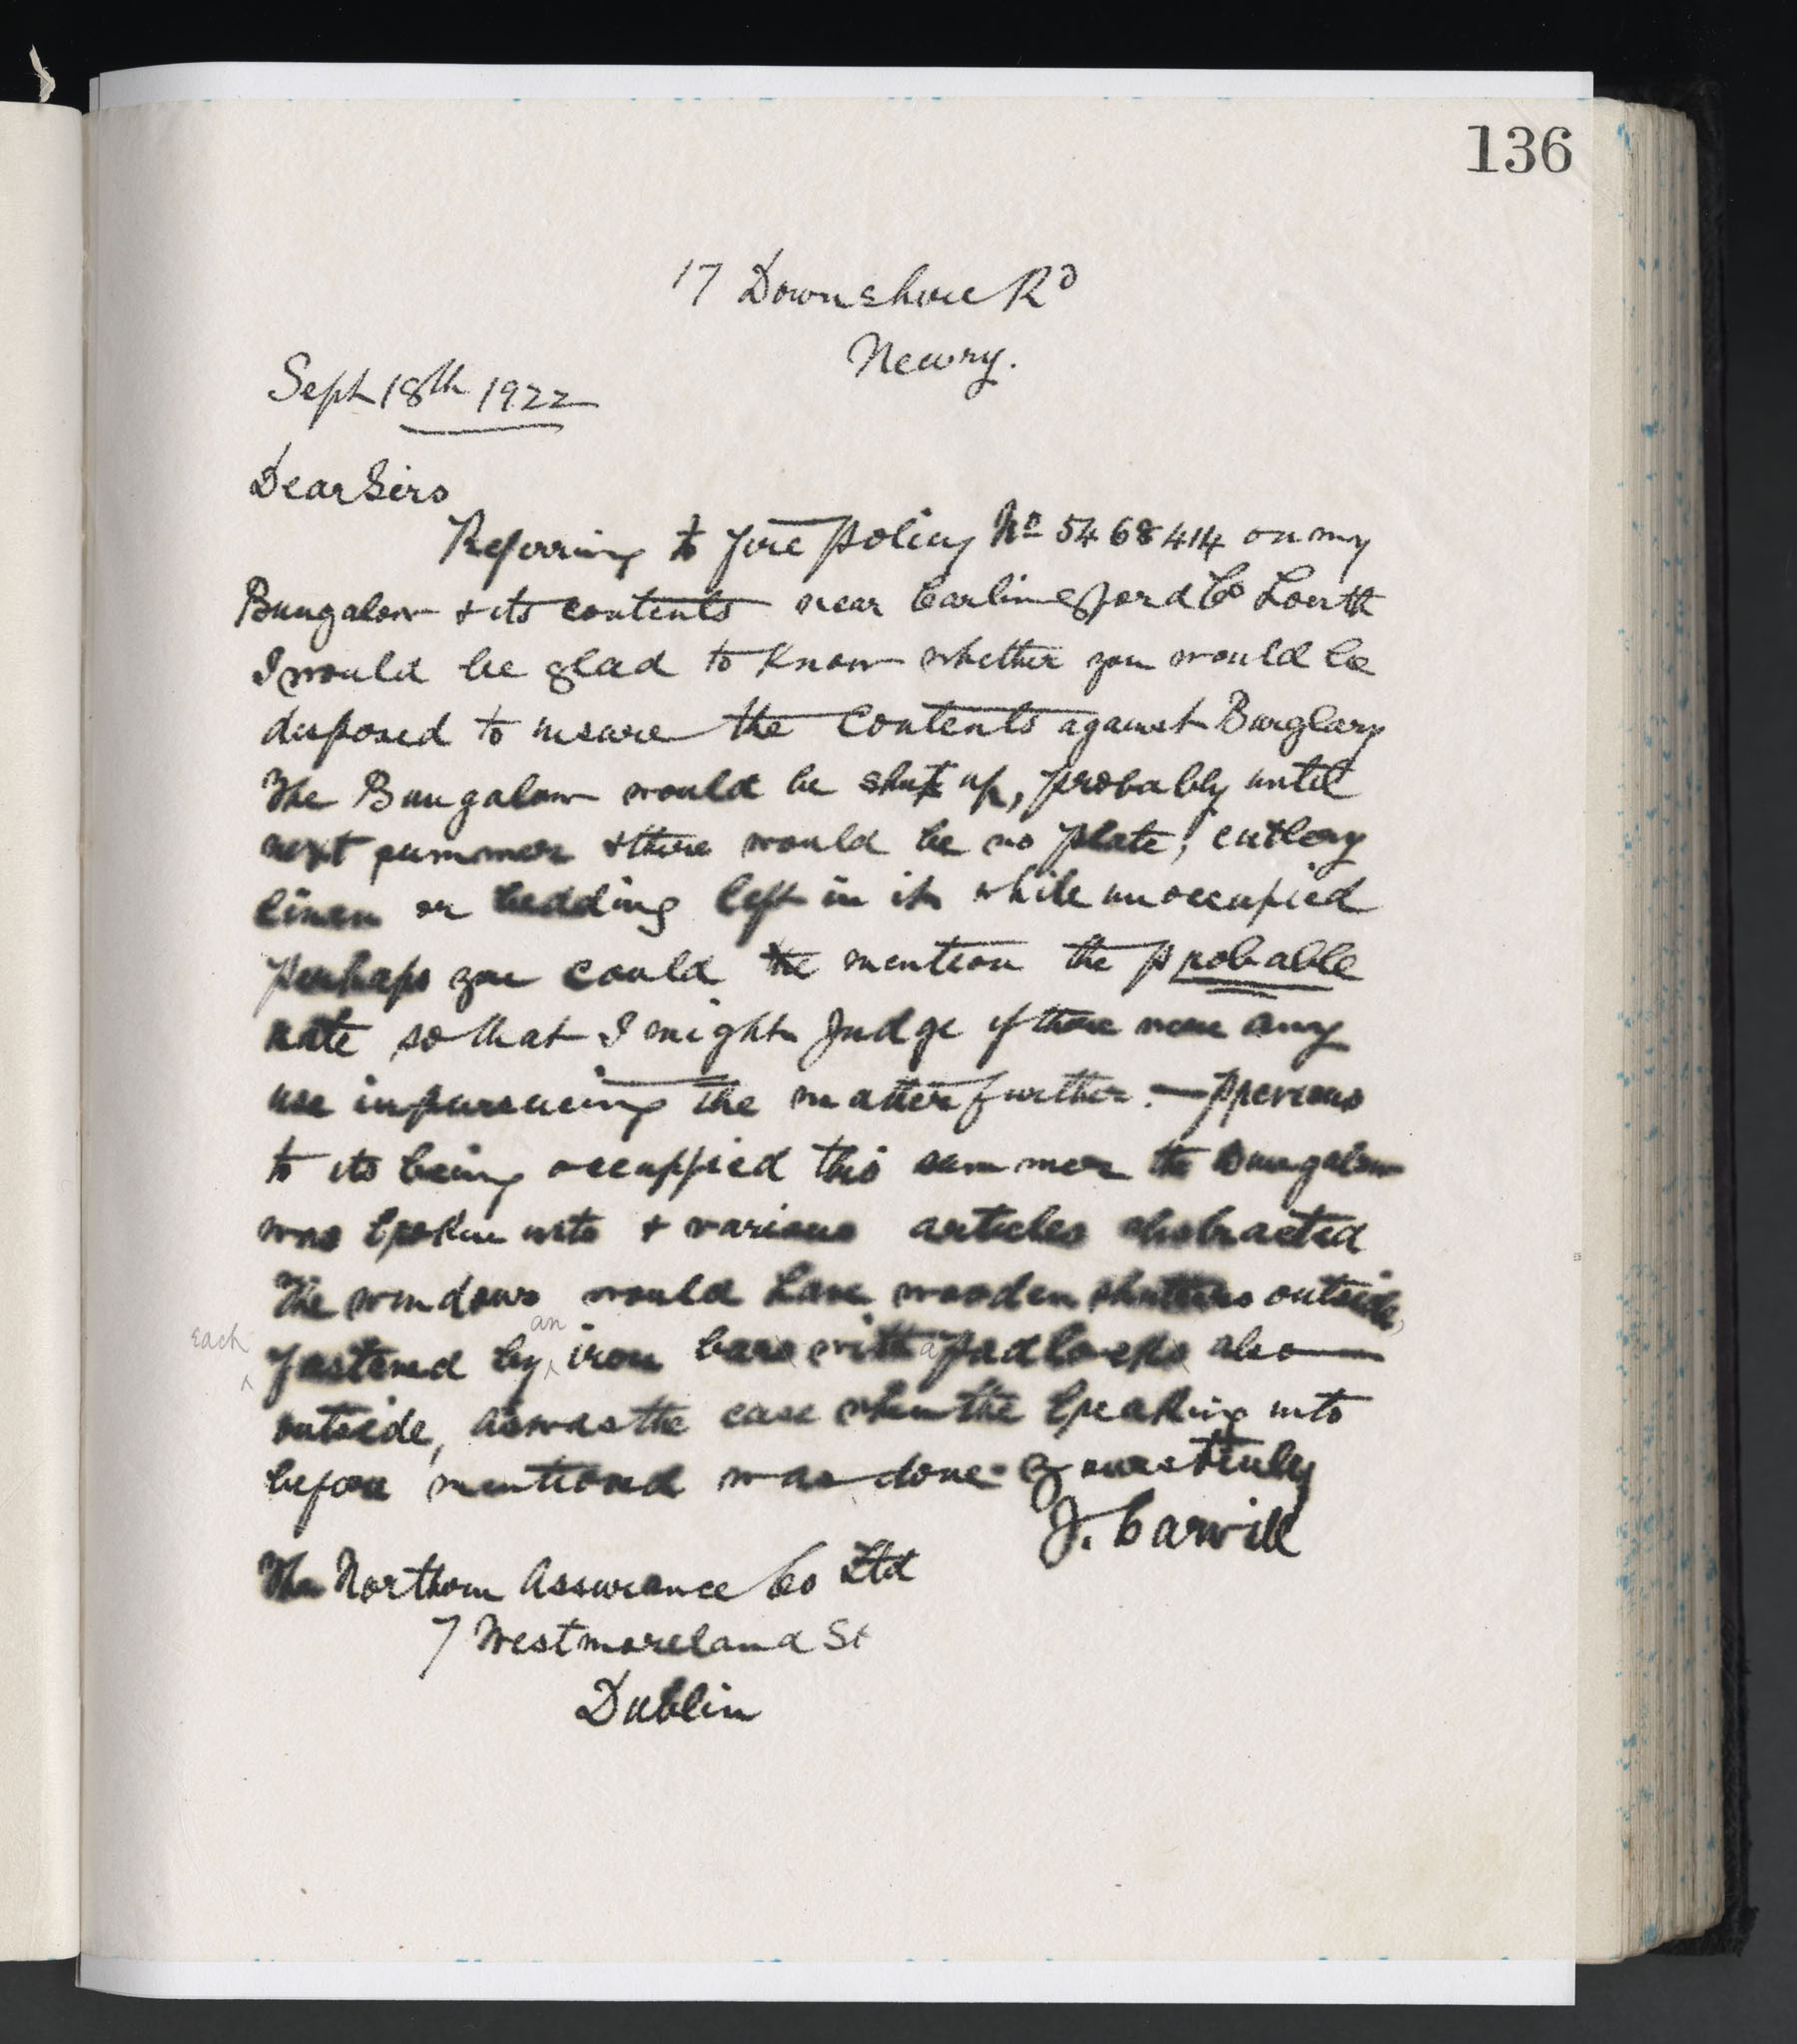 136
17 Downshire Rd
Newry.
Sept 18th 1922
Dear Sirs
Referring to fire policy No 5468414 on my
Bungalow & its contents near Carlingford Co Louth
I would be glad to know whether you would be
disposed to insure the Contents against Burglary
The Bungalow would be shut up, probably until
next summer & there would be no plate, cutlery
linen or bedding left in it while unoccupied
perhaps you could the mention the probable
rate so that I might Judge if there were any
use in pursueing the matter further. — previous
to its being occupied this summer the Bungalow
was broken into & various articles abstracted
The windows would have wooden shutters outside,
each fastened by an iron bars with a padlocks also
outside, as was the case when the breaking into
before mentioned was done. Yours truly
J. Carvill
The Northern Assurance Co Ltd
7 Westmoreland St
Dublin